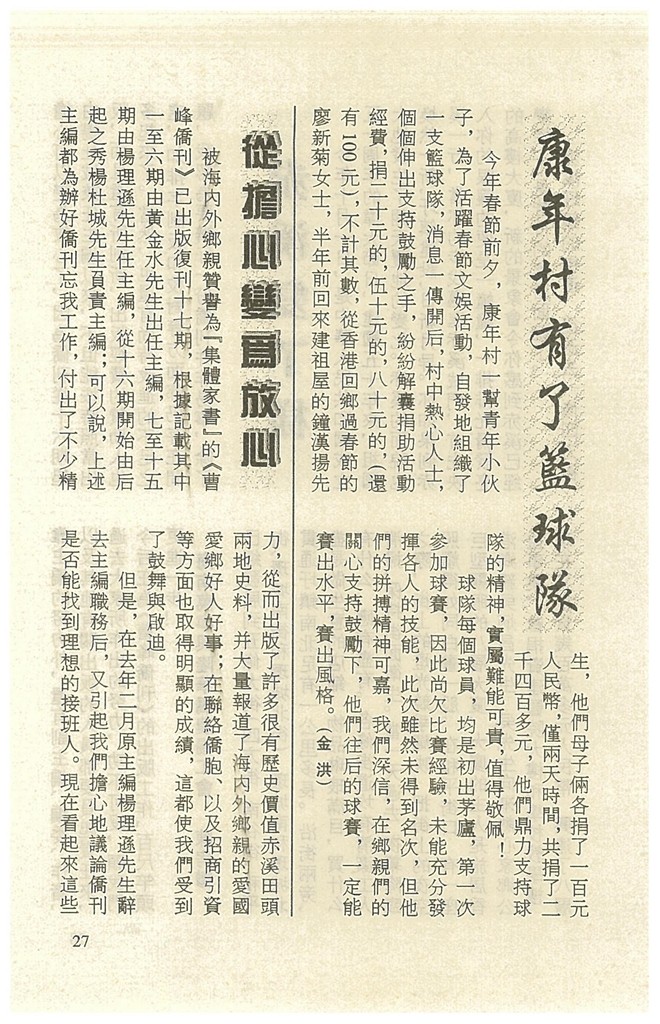 康年村有了籃球隊
今年春節前夕，康年村一幫青年小伙
子，為了活躍春節文娛活動，自發地組織了
一支籃球隊，消息一傳開后，村中熱心人士，
個個伸出支持鼓勵之手，紛紛解囊捐助活動
經費，捐二十元的，伍十元的，八十元的，(還
有100元)，不計其數，從香港回鄉過春節的
廖新菊女士，半年前回來建祖屋的鐘漢揚先
生，他們母子倆各捐了一百元
人民幣，僅兩天時間，共捐了二
千四百多元，他們鼎力支持球
隊的精神，實屬難能可貴，值得敬佩！
球隊每個球員，均是初出茅廬，第一次
參加球賽，因此尚欠比賽經驗，未能充分發
揮各人的技能，此次雖然未得到名次，但他
們的拼搏精神可嘉，我們深信，在鄉親們的
關心支持鼓勵下，他們往后的球賽，一定能
賽出水平，賽出風格。(金洪)
從擔心變爲放心
被海內外鄉親贊譽為『集體家書』的《曹
峰僑刊》已出版復刊十七期，根據記載其中
一至六期由黃金水先生出任主編，七至十五
期由楊理遜先生任主編，從十六期開始由后
起之秀楊杜城先生負責主編；可以說，上述
主編都為辦好僑刊忘我工作，付出了不少精
力，從而出版了許多很有歷史價值赤溪田頭
兩地史料，并大量報道了海內外鄉親的愛國
愛鄉好人好事；在聯絡僑胞、以及招商引資
等方面也取得明顯的成績，這都使我們受到
了鼓舞與啟迪。
但是，在去年二月原主編楊理遜先生辭
去主編職務后，又引起我們擔心地議論僑刊
是否能找到理想的接班人。現在看起來這些
27